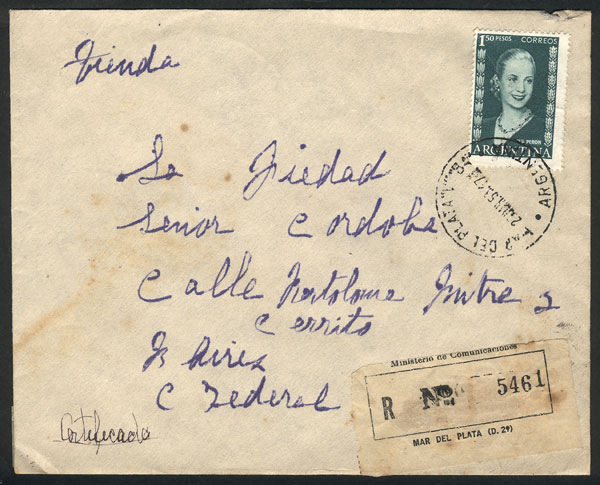 Tienda
1.50 PESOS CORREOS
PERON
ARGENTINA
MAR DEL PLATA
ARGENTINA
La Piedad
Señor Cordoba
Calle Bartolome Mitre y
Cerrito
B Aires
C Federal
Certificada
Ministerio de Comunicaciones
R Nº 5461
MAR DEL PLATA (D. 2º)